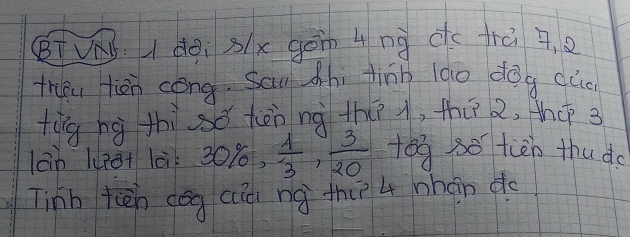 BTVN: 1 đội s/x gồm 4 ng đc trả 7,2
triệu tiền công. Sau khi tính lao độg của
từg ng thì số tiền ng thứ 1, thứ 2, thứ 3
lần lượt là: 30%, 1/3, 3/20 tổg số tiền thu đc
Tính tiền côg của ng thứ 4 nhận đc